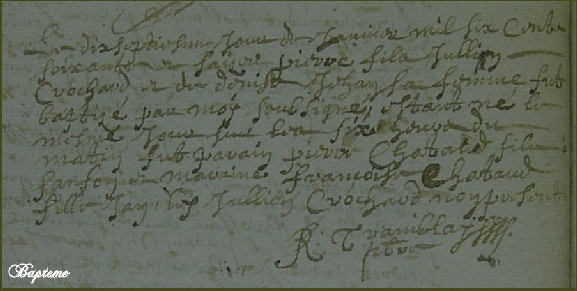 Le dixseptiesme Jour de Janvier mil six Cents
soixante et pierre fils Jullien
Crochard et de denise Jehan sa femme fut
baptisé par moy soubsigné, estant né le
mesme Jour sur les six heure du
matin fut parain pierre Chataud fils
maraine francoise Chataud
fille Jullien Crochard
R.
pbre
Bapteme